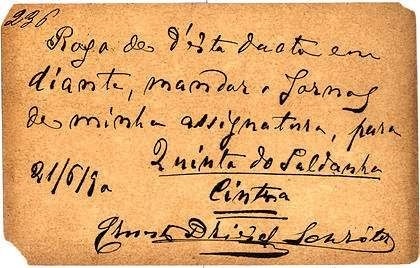 236
Rogo de d'ésta data em
diante, mandar o Jornal
de minha assignatura, para
Quinta do Saldanha
21/6/90
Cintra
Ernst Driesel Schröter